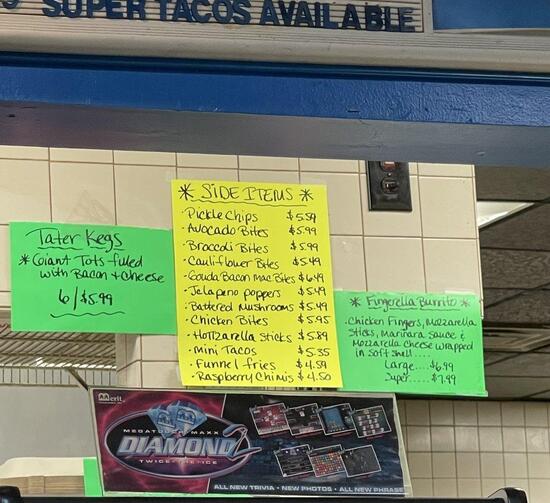 SUPER TACOS AVAILABLE
Tater Kegs
* Giant Tots filled
with Bacon + cheese
6/$5.99
* SIDE ITEMS *
· Pickle Chips $5.59
· Avocado Bites $5.99
· Broccoli Bites $5.99
· Cauliflower Bites $5.49
· Gouda Bacon Mac Bites $6.49
· Jalapeno poppers $5.49
· Battered Mushrooms $5.49
· Chicken Bites $5.95
· Mozzarella Sticks $5.89
· Mini Tacos $5.35
· Funnel fries $4.59
· Raspberry Chimis $4.50
* Fingerella Burrito *
· Chicken Fingers, Mozzarella
Sticks, Marinara Sauce &
Mozzarella Cheese wrapped
in soft shell....
Large... $6.99
Super... $7.99
Merit
MEGATOUCH MAXX
DIAMOND 2
TWICE THE ICE
ALL NEW TRIVIA · NEW PHOTOS · ALL NEW PHRASE